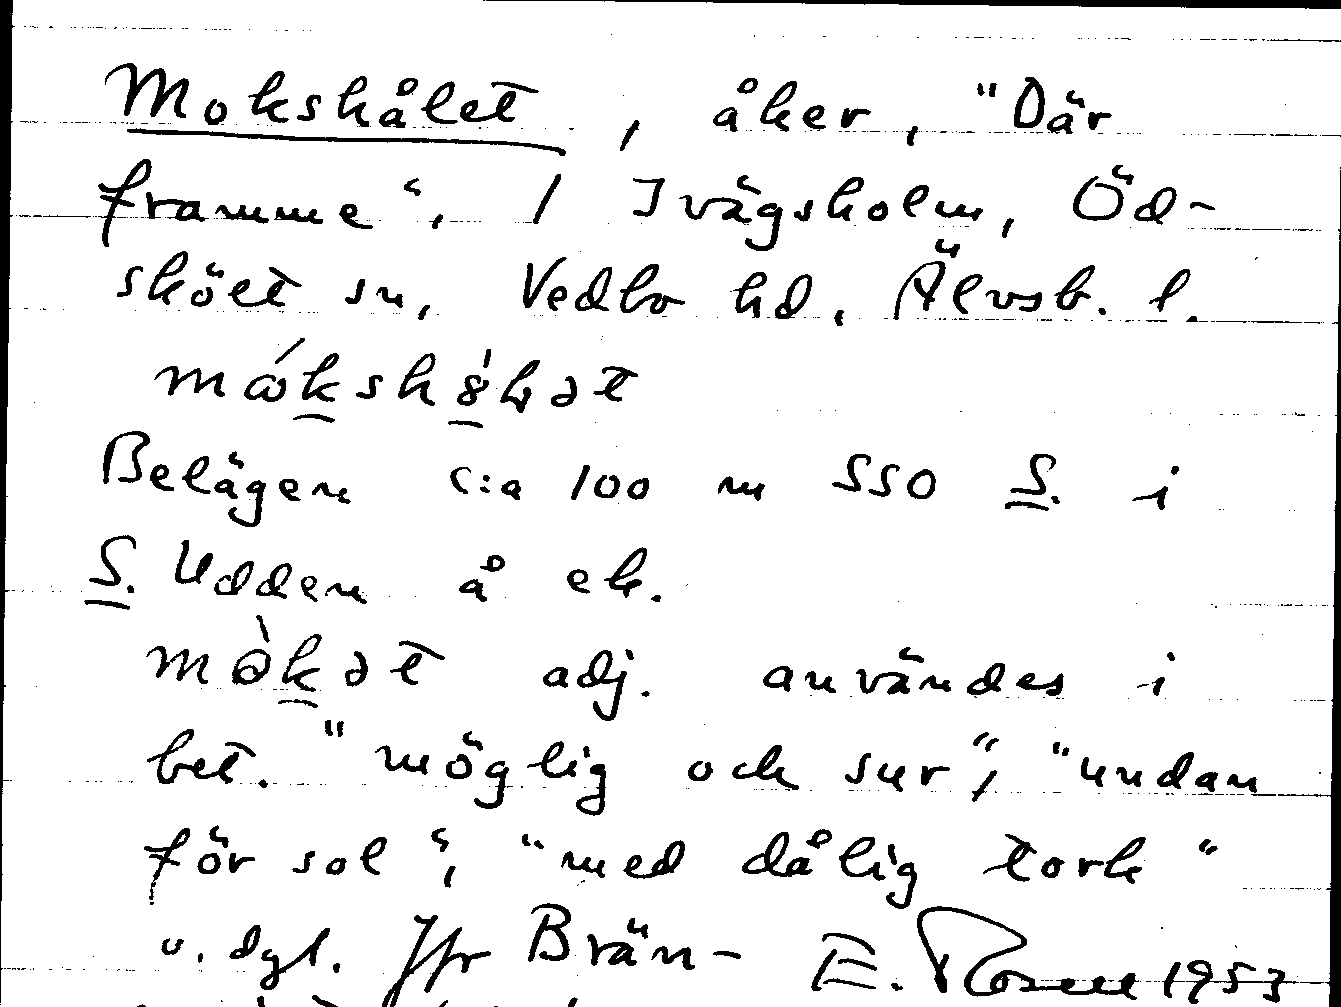 Mokshålet, åker, "Där
framme", 1 Ivägsholm, Öd-
sköet sn, Vedbo hd, Älvsb. l.
Belägen c:a 100 m SSO S. i
S. Udden å ek.
adj. användes i
bet. "möglig och sur", "undan
för sol", "med dålig tork"
o. dgl. Jfr Brän- E. Rosell 1953